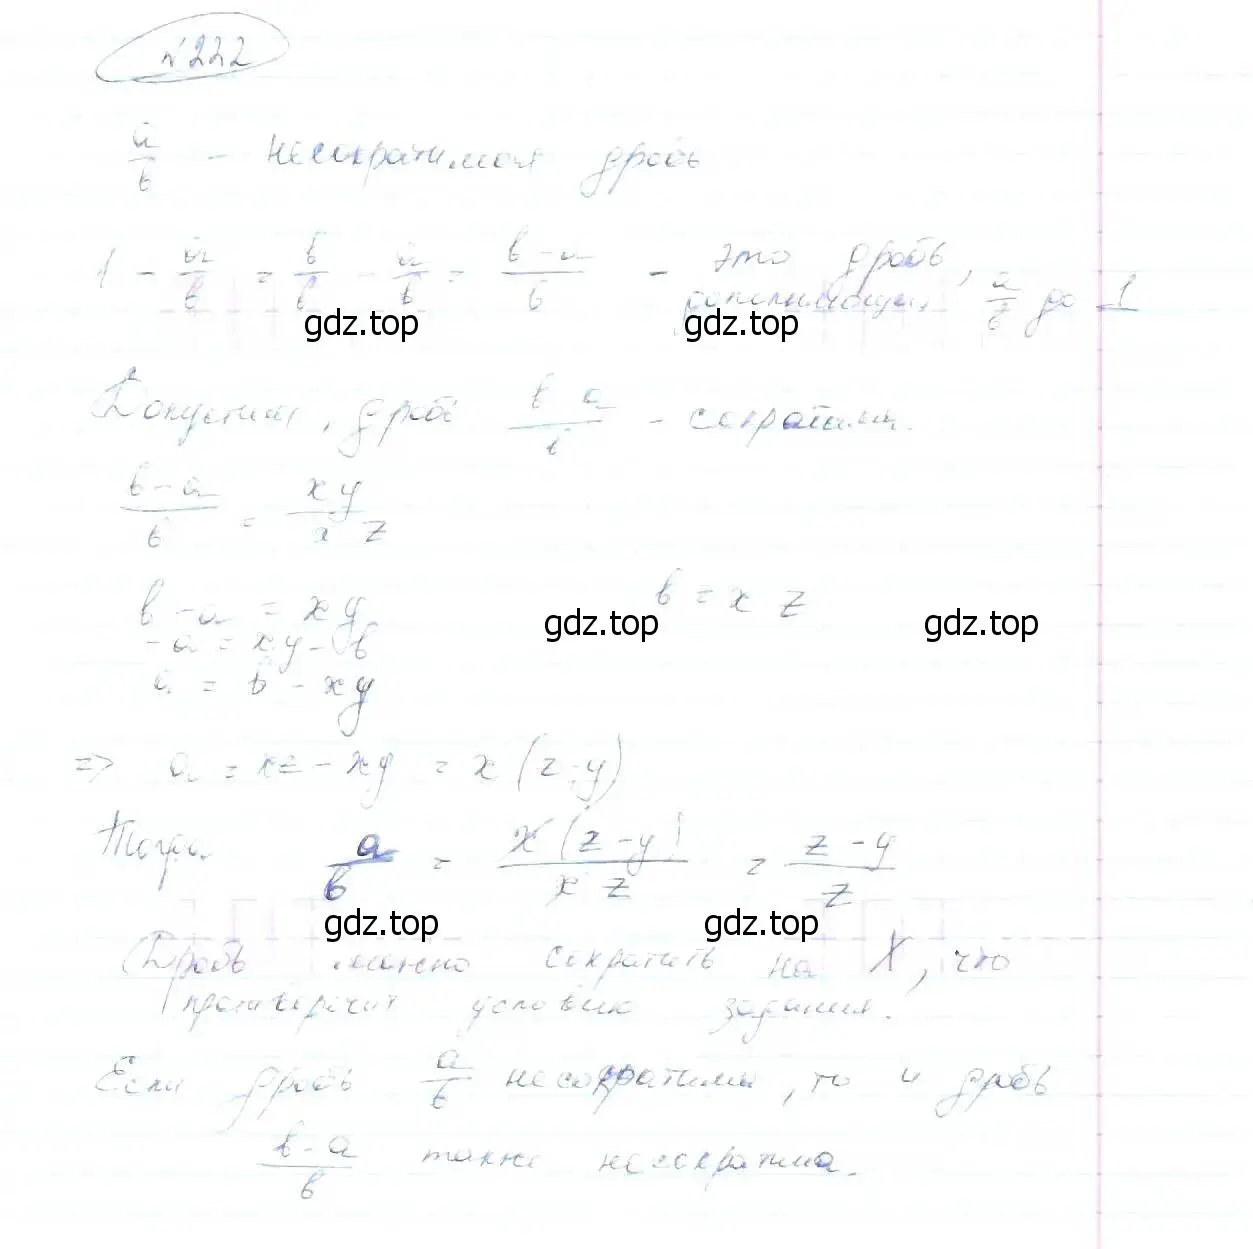 №222
a/b – несократимая дробь
1 – a/b = b/b – a/b = (b – a)/b – это дробь,
дополняющая a/b до 1
gdz.top gdz.top
Допустим, дробь (b a)/b – сократима.
(b – a)/b = xy/xz
b – a = xy b = xz
gdz.top gdz.top
–a = xy – b
a = b – xy
=> a = xz – xy = x(z – y)
Тогда a/b = x(z – y)/xz = (z – y)/z
gdz.top gdz.top
Дробь можно сократить на x, что
противоречит условию задания.
Если дробь a/b несократима, то и дробь
(b – a)/b также несократима.